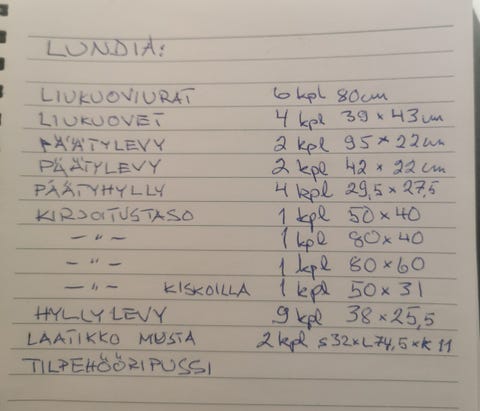 LUNDIA:
LIUKUOVIURAT 6 kpl 80cm
LIUKUOVET 4 kpl 39 × 43 cm
PÄÄTYLEVY 2 kpl 95 × 22 cm
PÄÄTYLEVY 2 kpl 42 × 22 cm
PÄÄTYHYLLY 4 kpl 29,5 × 27,5
KIRJOITUSTASO 1 kpl 50 × 40
— " — 1 kpl 80 × 40
— " — 1 kpl 80 × 60
— " — KISKOILLA 1 kpl 50 × 31
HYLLYLEVY 9 kpl 38 × 25,5
LAATIKKO MUSTA 2 kpl s32×L74,5×K11
TILPEHÖÖRIPUSSI